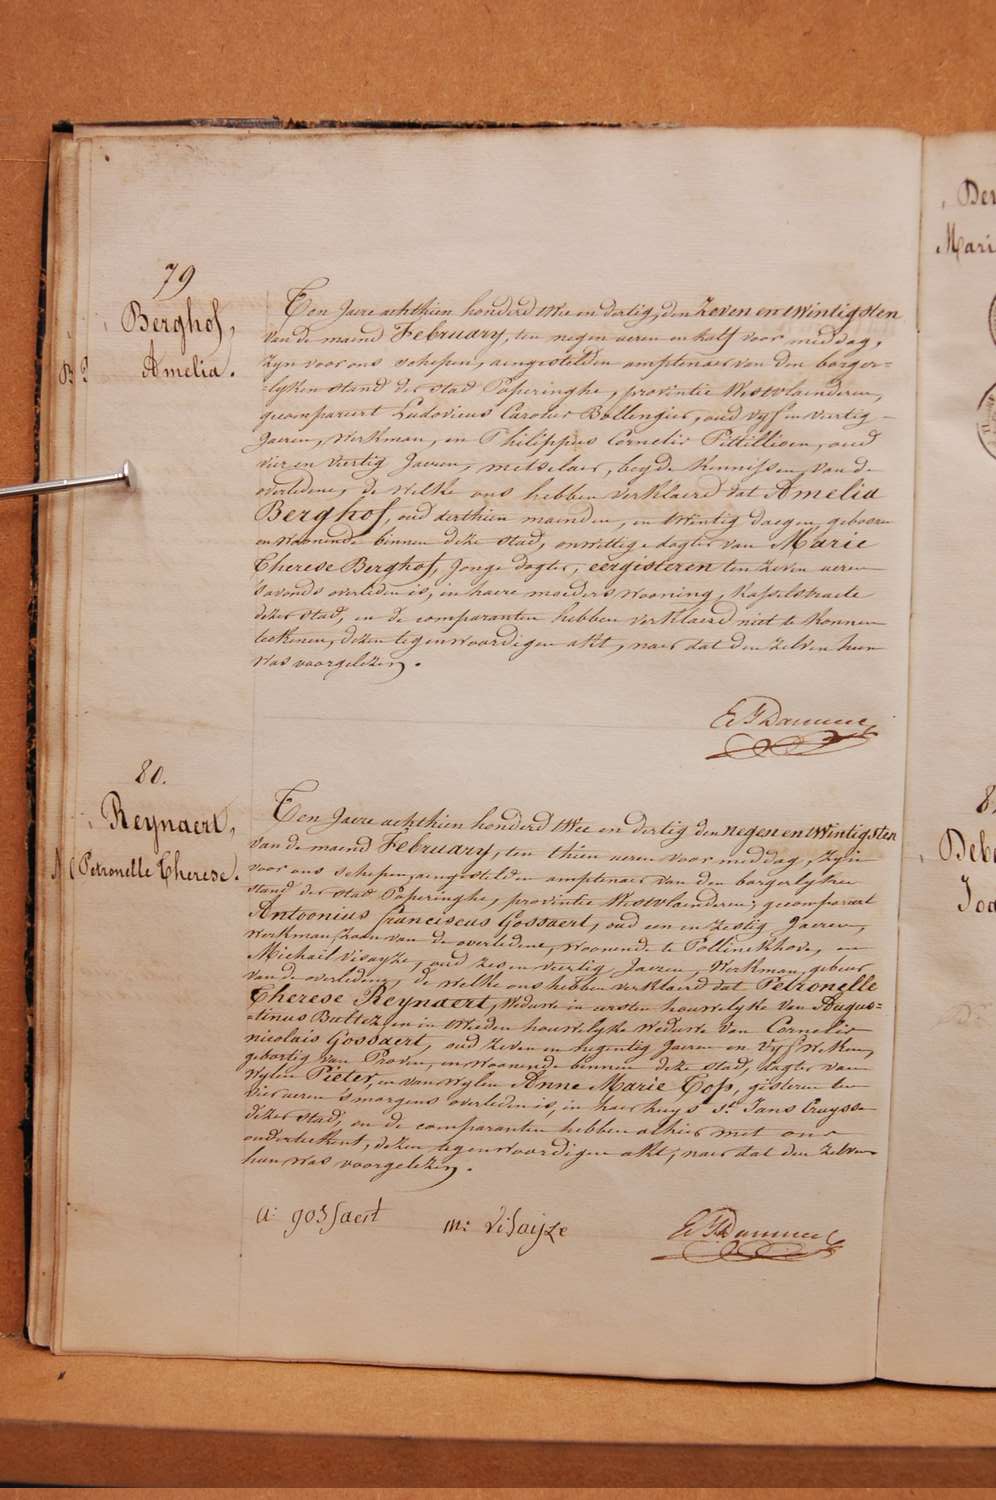 79
Berghof,
Amelia.
Ten Jaere achthien honderd twee en dertig, den zeven en twintigsten
van de maend February, ten negen ueren en half voor middag,
zyn voor ons schepen, aengestelden amptenaer van den borger-
lyken stand der stad Poperinghe, provintie Westvlaenderen,
gecompareert Ludovicus Carolus Bollengier, oud vyf en veertig
Jaeren, werkman, en Philippus Cornelis Pittillioen, oud
vier en veertig Jaeren, metselaer, beyde kennissen van de
overledene, de welke ons hebben verklaerd dat Amelia
Berghof, oud derthien maenden, en twintig daegen, geboren
en woonende binnen deze stad, onwettige dogter van Marie
Therese Berghof, Jonge dogter, eergisteren ten zeven ueren
'savonds overleden is, in haere moeders wooning, Kasselstraete
dezer stad, en de comparanten hebben verklaerd niet te konnen
teekenen, dezen tegenwoordigen akt, naer dat den zelven hun
was voorgelezen.
80.
Reynaert,
Petronelle Therese.
Ten Jaere achthien honderd twee en dertig den negen en twintigsten
van de maend February, ten thien ueren voor middag, zyn
voor ons schepen, aengestelden amptenaer van den borgerlyken
stand der stad Poperinghe, provintie Westvlaenderen; gecompareert
Antoonius franciscus Gossaert, oud een en zestig Jaeren,
werkman, zoon van de overledene, woonende te Pollinckhove, en
Michail Visayze, oud zes en veertig Jaeren, Werkman, gebuer
van de overledene, de welke ons hebben verklaerd dat Petronelle
Therese Reynaert, Weduwe in eersten houwelyke van Augus-
tinus Battez, en in tweeden houwelyke weduwe van Cornelis
nicolais Gossaert, oud zeven en negentig Jaeren en vyf weken,
gebortig van Proven, en woonende binnen deze stad, dogter van
wylen Pieter, en van wylen Anne Marie Cop, gisteren ten
vier ueren 's morgens overleden is, in haer huys St Jans Cruysse
dezer stad, en de comparanten hebben alhier met ons
onderteekent, dezen tegenwoordigen akt, naer dat den zelven
hun was voorgelezen.
a: gossaert
m: Visayze